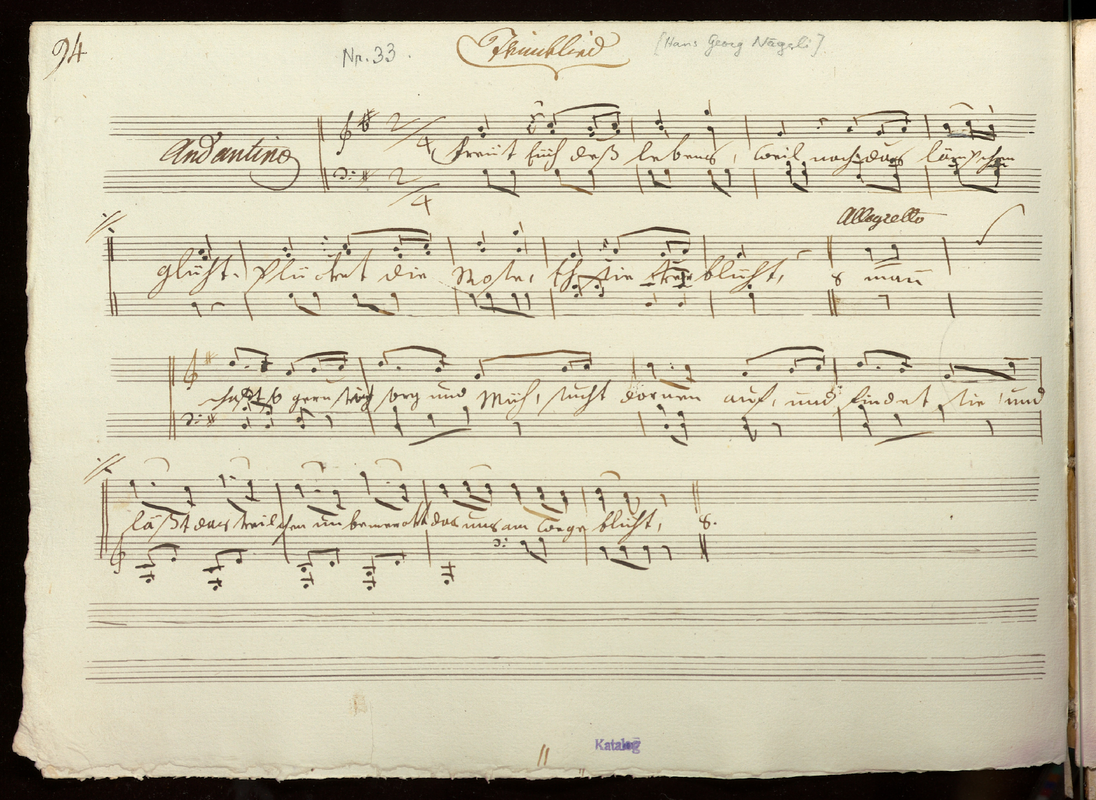 94 Nr. 33. Trinklied [Hans Georg Nägeli]
Andantino 2/4 freüt Eüch deß lebens, weil noch das lämpchen
2/4
Allegretto
glüht. Plücket die Rose, Eh sie verblüht, man
schaft so gern sich sorg und Müh, sucht dornen auf, und findet sie, und
läßt das veilchen unbemerckt das uns am wege blüht,
Katalog